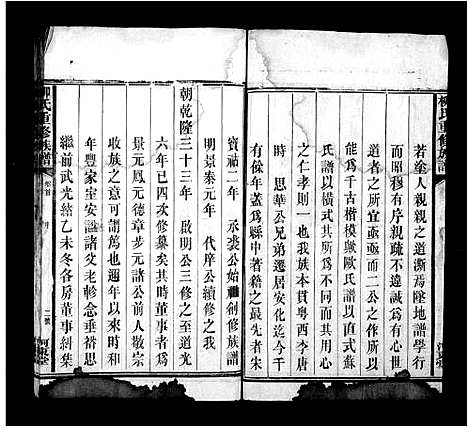 柳氏重修族譜
若塗人親親之道澌焉墜地譜學行
而昭穆有序親疏不違誠為有心世
道者之所宜亟亟而二公之作所以
能為千古楷模與歐氏譜以直式蘇
氏譜以橫式其所為同條其所以教人
之仁孝則一也我族本貫粵西李唐
時 思華公兄弟遷居安化迄今千
有餘年蔓為縣中著籍之最先者宋
寶祐二年 承裘公始創修族譜
明景泰元年 代庠公續修之我
朝乾隆三十三年 啟明公三修之至道光
六年已四次修纂矣其時董事
景元鳳元德章步元諸公前人敬宗
收族之意可謂篤也邇年以來時和
年豐家室安謐諸父老軫念垂裕思
繼前武光緒乙未冬各房董事糾集
柳氏重修族譜
卷首
二 河東堂